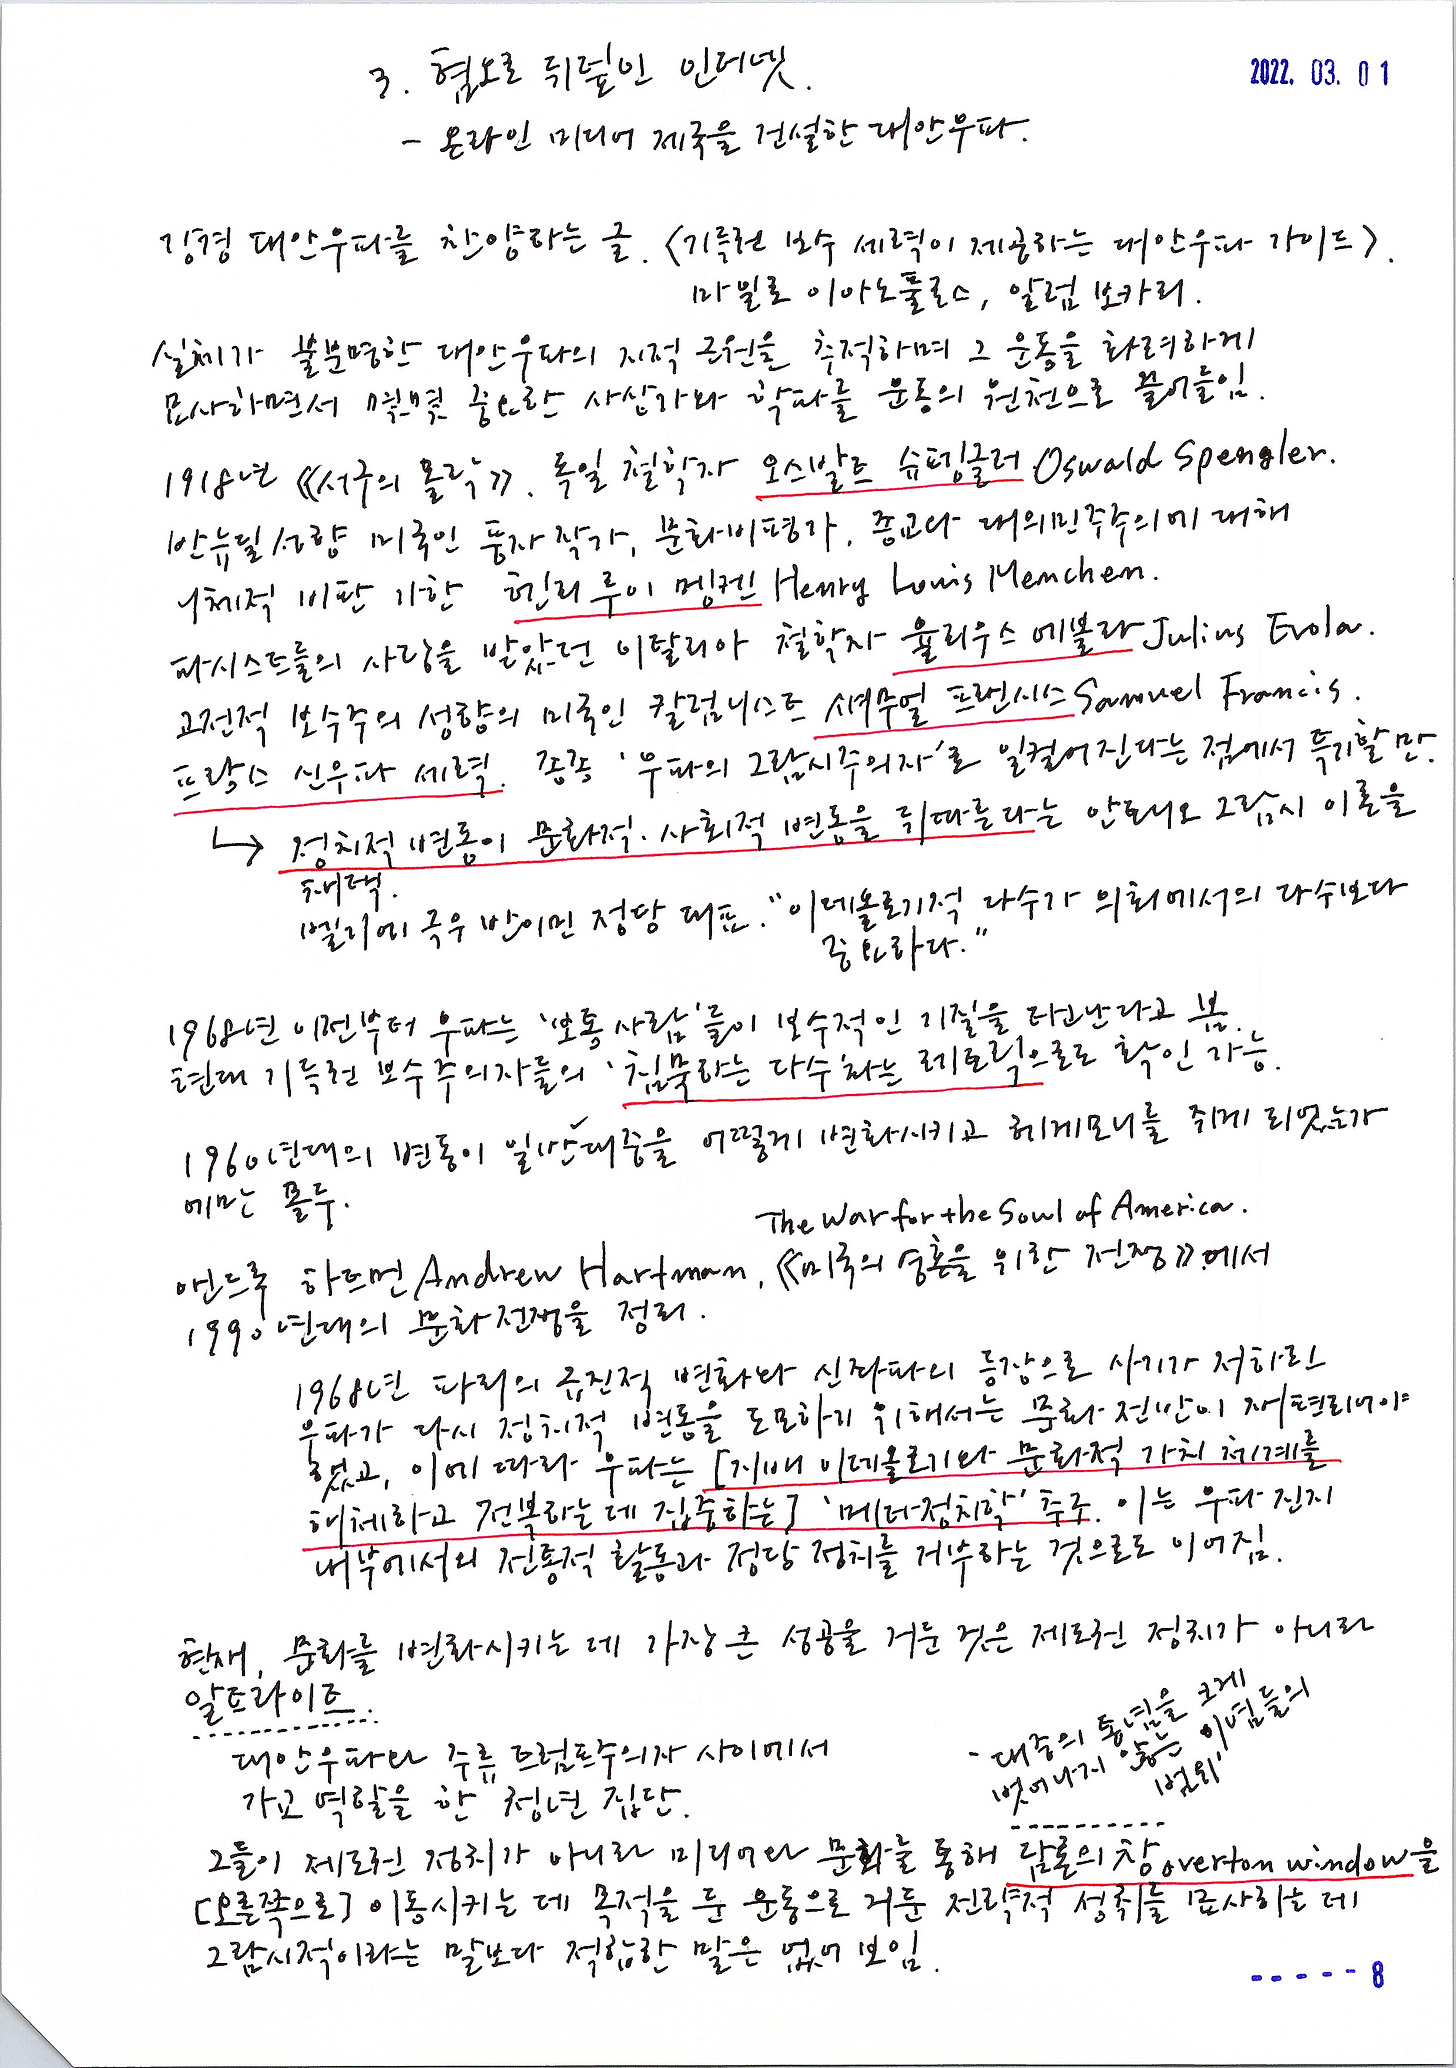 3. 혐오로 뒤덮인 인터넷.
2022. 03. 01
- 온라인 미디어 제국을 건설한 대안우파.
강경 대안우파를 찬양하는 글. 〈기득권 보수 세력이 제공하는 대안우파 가이드〉.
마일로 이아노풀로스, 알럼 보카리.
실체가 불분명한 대안우파의 지적 근원을 추적하며 그 운동을 화려하게
묘사하면서 몇몇 중요한 사상가와 학파를 운동의 원천으로 끌어들임.
1918년 《서구의 몰락》. 독일 철학자 오스발트 슈펭글러 Oswald Spengler.
반뉴딜성향 미국인 풍자 작가, 문화비평가. 종교다 대의민주주의에 대해
니체적 비판 가한 헨리 루이 멩켄 Henry Louis Menchen.
파시스트들의 사랑을 받았던 이탈리아 철학자 율리우스 에볼라 Julius Evola.
고전적 보수주의 성향의 미국인 칼럼니스트 새뮤얼 프랜시스 Samuel Francis.
프랑스 신우파 세력. 종종 '우파의 그람시주의자'로 일컬어진다는 점에서 특기할 만.
↳ 정치적 변동이 문화적·사회적 변동을 뒤따른다는 안토니오 그람시 이론을
채택.
벨기에 극우 반이민 정당 대표. "이데올로기적 다수가 의회에서의 다수보다
중요하다."
1968년 이전부터 우파는 '보통 사람'들이 보수적인 기질을 타고난다고 봄.
현대 기득권 보수주의자들의 '침묵하는 다수'라는 레토릭으로도 확인 가능.
1960년대의 변동이 일반 대중을 어떻게 변화시키고 헤게모니를 쥐게 되었는가
에만 몰두.
The War for the Soul of America.
앤드루 하트먼 Andrew Hartman, 《미국의 영혼을 위한 전쟁》에서
1990년대의 문화전쟁을 정리.
1968년 파리의 급진적 변화와 신좌파의 등장으로 사기가 저하된
우파가 다시 정치적 변동을 도모하기 위해서는 문화 전반이 재편되어야
했고, 이에 따라 우파는 [지배 이데올로기와 문화적 가치 체계를
해체하고 전복하는 데 집중하는] '메타정치학' 추구. 이는 우파 진지
내부에서의 전통적 활동과 정당 정치를 거부하는 것으로도 이어짐.
현재, 문화를 변화시키는 데 가장 큰 성공을 거둔 것은 제도권 정치가 아니라
알트라이트.
대안우파와 주류 트럼프주의자 사이에서
가교 역할을 한 청년 집단.
'대중의 통념을 크게
벗어나지 않는 이념들의
범위'
그들이 제도권 정치가 아니라 미디어와 문화를 통해 담론의 창 overton window을
[오른쪽으로] 이동시키는 데 목적을 둔 운동으로 거둔 전략적 성취를 묘사하는 데
그람시적이라는 말보다 적합한 말은 없어 보임.
----- 8